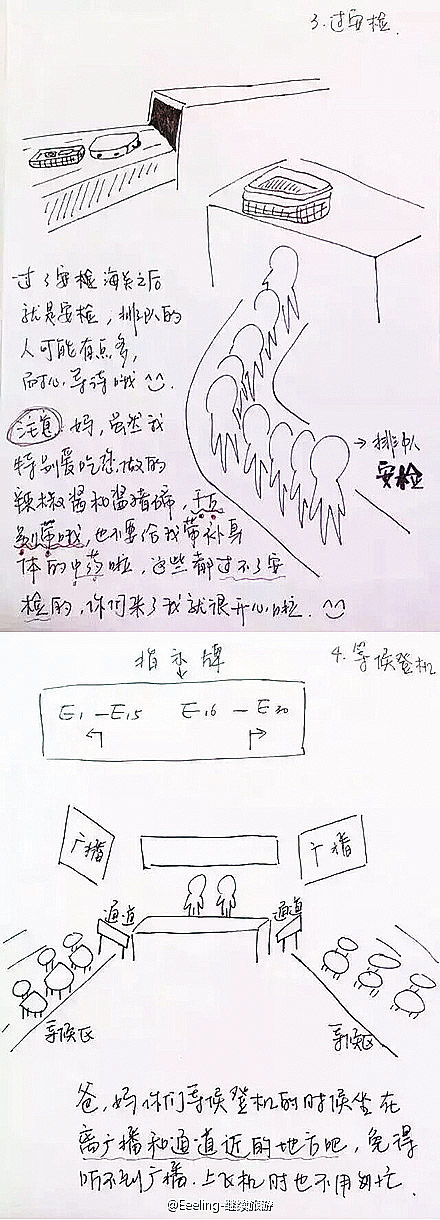 3.过安检.
过了安检海关之后
就是安检，排队的
人可能有点多，
耐心等待哦
注意 妈，虽然我
特别爱吃您做的
辣椒酱和酱猪蹄，千万
别带哦，也不要给我带补身
体的中药啦，这些都过不了安
检的，你们来了我就很开心啦.
→排队
安检
指示牌
4.等候登机
E1 — E15 E16 — E30
广播
广播
通道
通道
等候区
等候区
爸，妈你们等候登机的时候坐在
离广播和通道近的地方吧，免得
听不到广播.上飞机时也不用匆忙.
@Eeeling-继续旅游